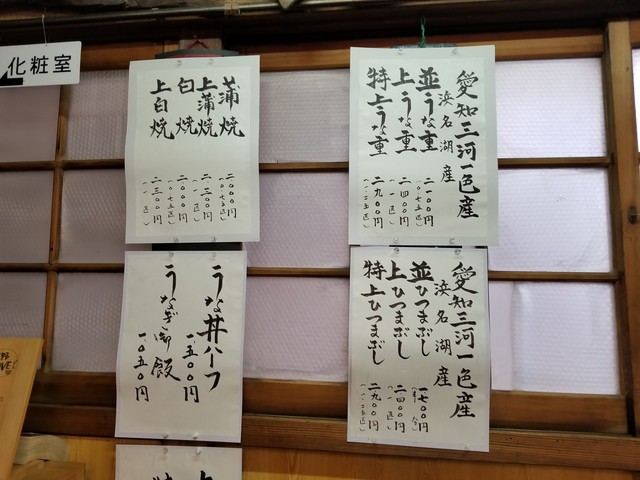 化粧室
愛知三河一色産
浜名湖産
並うな重 二一〇〇円
上うな重 二四〇〇円
特上うな重 二九〇〇円
蒲焼 二〇〇〇円
上蒲焼 二三〇〇円
白焼 二〇〇〇円
上白焼 二三〇〇円
愛知三河一色産
浜名湖産
並ひつまぶし 一七〇〇円
上ひつまぶし 二四〇〇円
特上ひつまぶし 二九〇〇円
うな丼ハーフ 一、五〇〇円
うなぎ御飯 一、〇五〇円